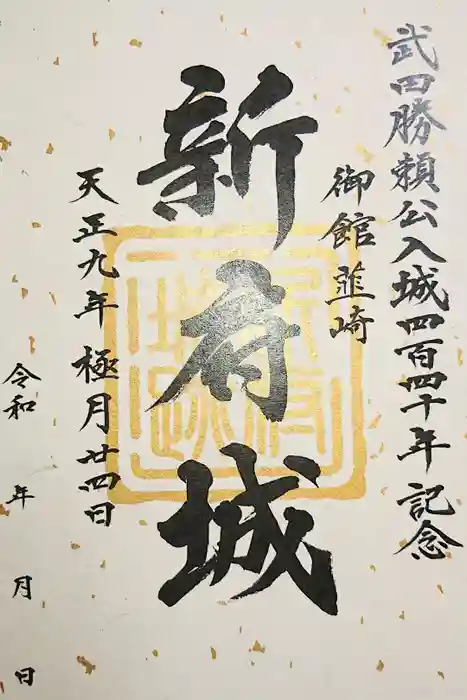 武田勝頼公入城四百四十年記念
御館 韮崎
新府城
天正九年極月廿四日
令和 年 月 日